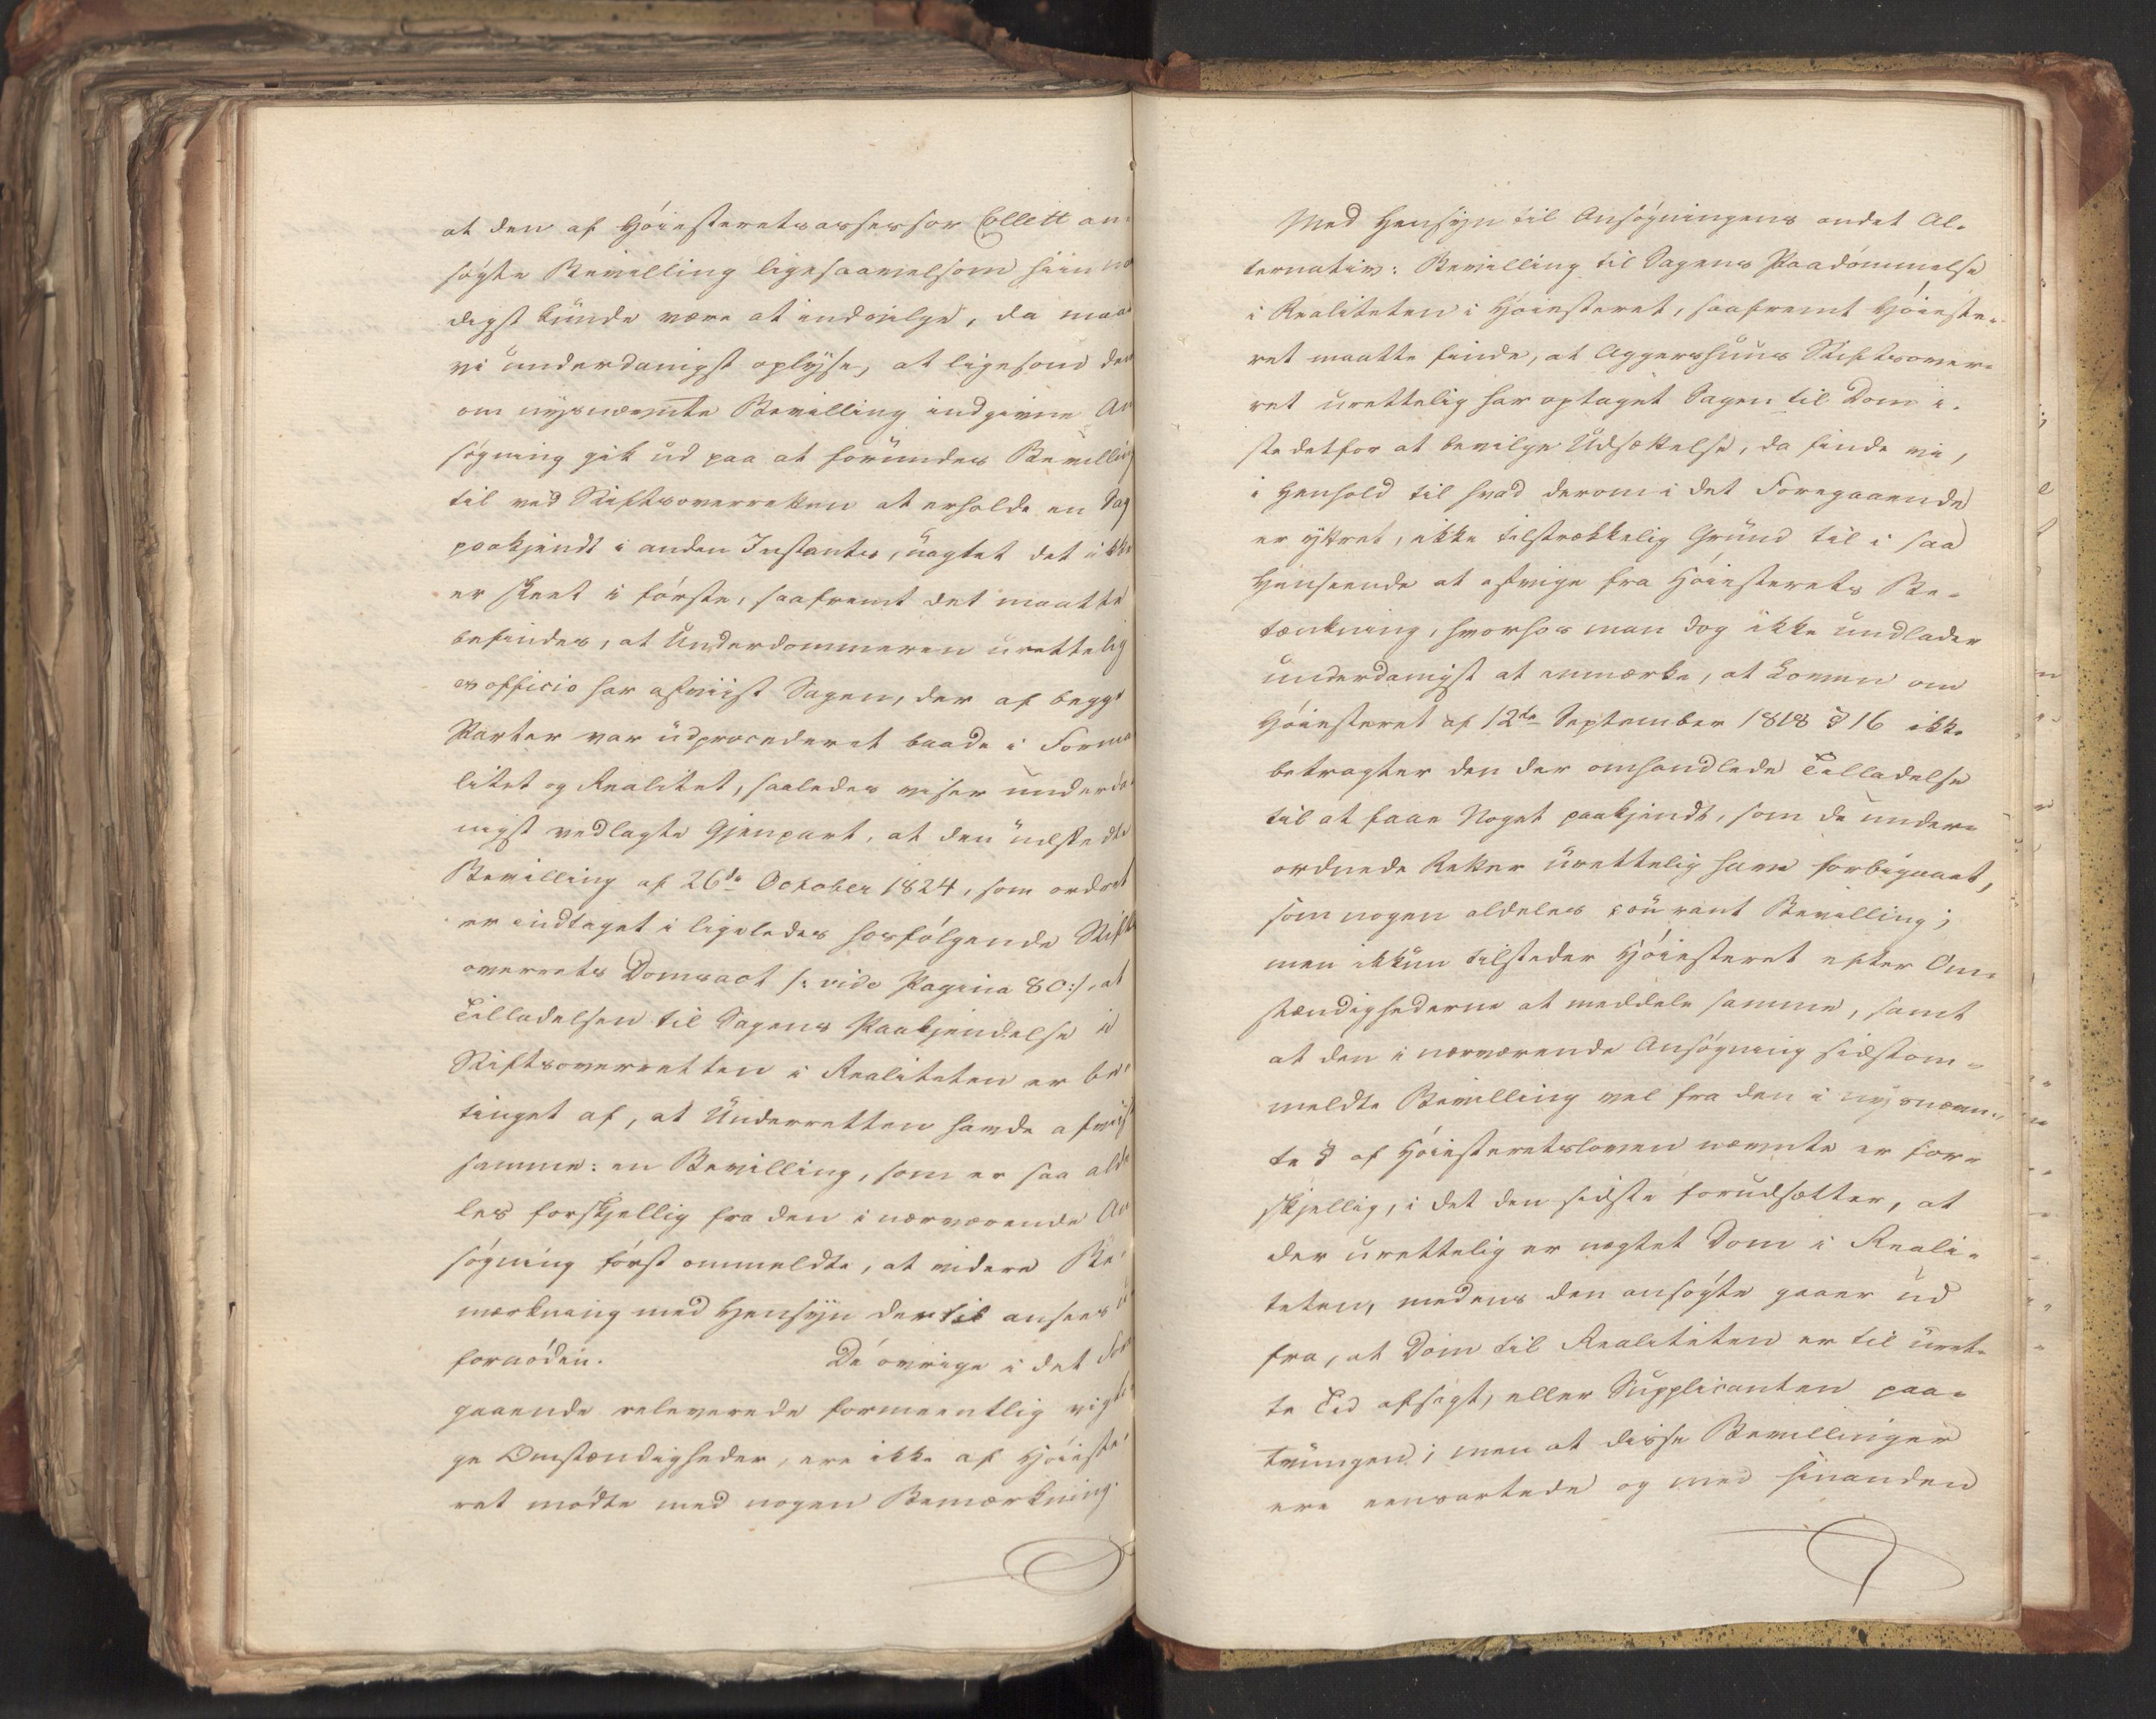 at den af Høiesteretsassessor Collett an¬
søgte Bevilling ligesaavelsom hiin naa
digst kunde være at indvilge, da maa
vi underdanigst oplyse, at ligesom den
om nysnævnte Bevilling indgivne An
søgning gik ud paa at forundes Bevilling
til ved Stiftsoverretten at erholde en Sag
paakjendt i anden Instants, uagtet det ikke
er skeet i første, saafremt det maatte
befindes, at Underdommeren urettelig
ex officio har afviist Sagen, der af begge
Parter var udprocederet baade i Forma
litet og Realitet, saaledes viser underda¬
nigst vedlagte Gjenpart, at den udstedte
Bevilling af 26de October 1824, som ordret
er indtaget i ligeledes hosfølgende Stifts
overrets Domsact /: vide Pagina 80:/, at
Tilladelsen til Sagens Paakjendelse i
Stiftsoverretten i Realiteten er be¬
tinget af, at Underretten havde afviist
samme: en Bevilling, som er saa alde
les forskjellig fra den i nærværende An
søgning først ommeldte, at videre Be¬
mærkning med Hensyn dertil ansees u
fornøden. De øvrige i det Fore
gaaende releverede formeentlig vigti
ge Omstændigheder, ere ikke af Høieste¬
ret mødte med nogen Bemærkning.
Med Hensyn til Ansøgningens andet Al¬
ternativ: Bevilling til Sagens Paadømmelse
i Realiteten i Høiesteret, saafremt Høieste¬
ret maatte finde, at Aggershuus Stiftsover¬
ret urettelig har optaget Sagen til Dom i¬
stedetfor at bevilge Udsættelse, da finde vi,
i Henhold til hvad derom i det Foregaaende
er yttret, ikke tilstrækkelig Grund til i saa
Henseende at afvige fra Høiesterets Be¬
tænkning, hvorhos man dog ikke undlader
underdanigst at anmærke, at Loven om
Høiesteret af 12te September 1818 § 16 ikke
betragter den der omhandlede Tilladelse
til at faae Noget paakjendt, som de under¬
ordnede Retter urettelig have forbigaaet,
som nogen aldeles courant Bevilling;
men ikkun tilsteder Høiesteret efter Om¬
stændighederne at meddele samme, samt
at den i nærværende Ansøgning sidstom¬
meldte Bevilling vel fra den i nysnævn¬
te § af Høiesteretsloven nævnte er for¬
skjellig, i det den sidste forudsætter, at
der urettelig er nægtet Dom i Reali¬
teten, medens den ansøgte gaaer ud
fra, at Dom til Realiteten er til uret¬
te Tid afsagt, eller Supplicanten paa¬
tvungen; men at disse Bevillinger
ere eensartede og med hinanden